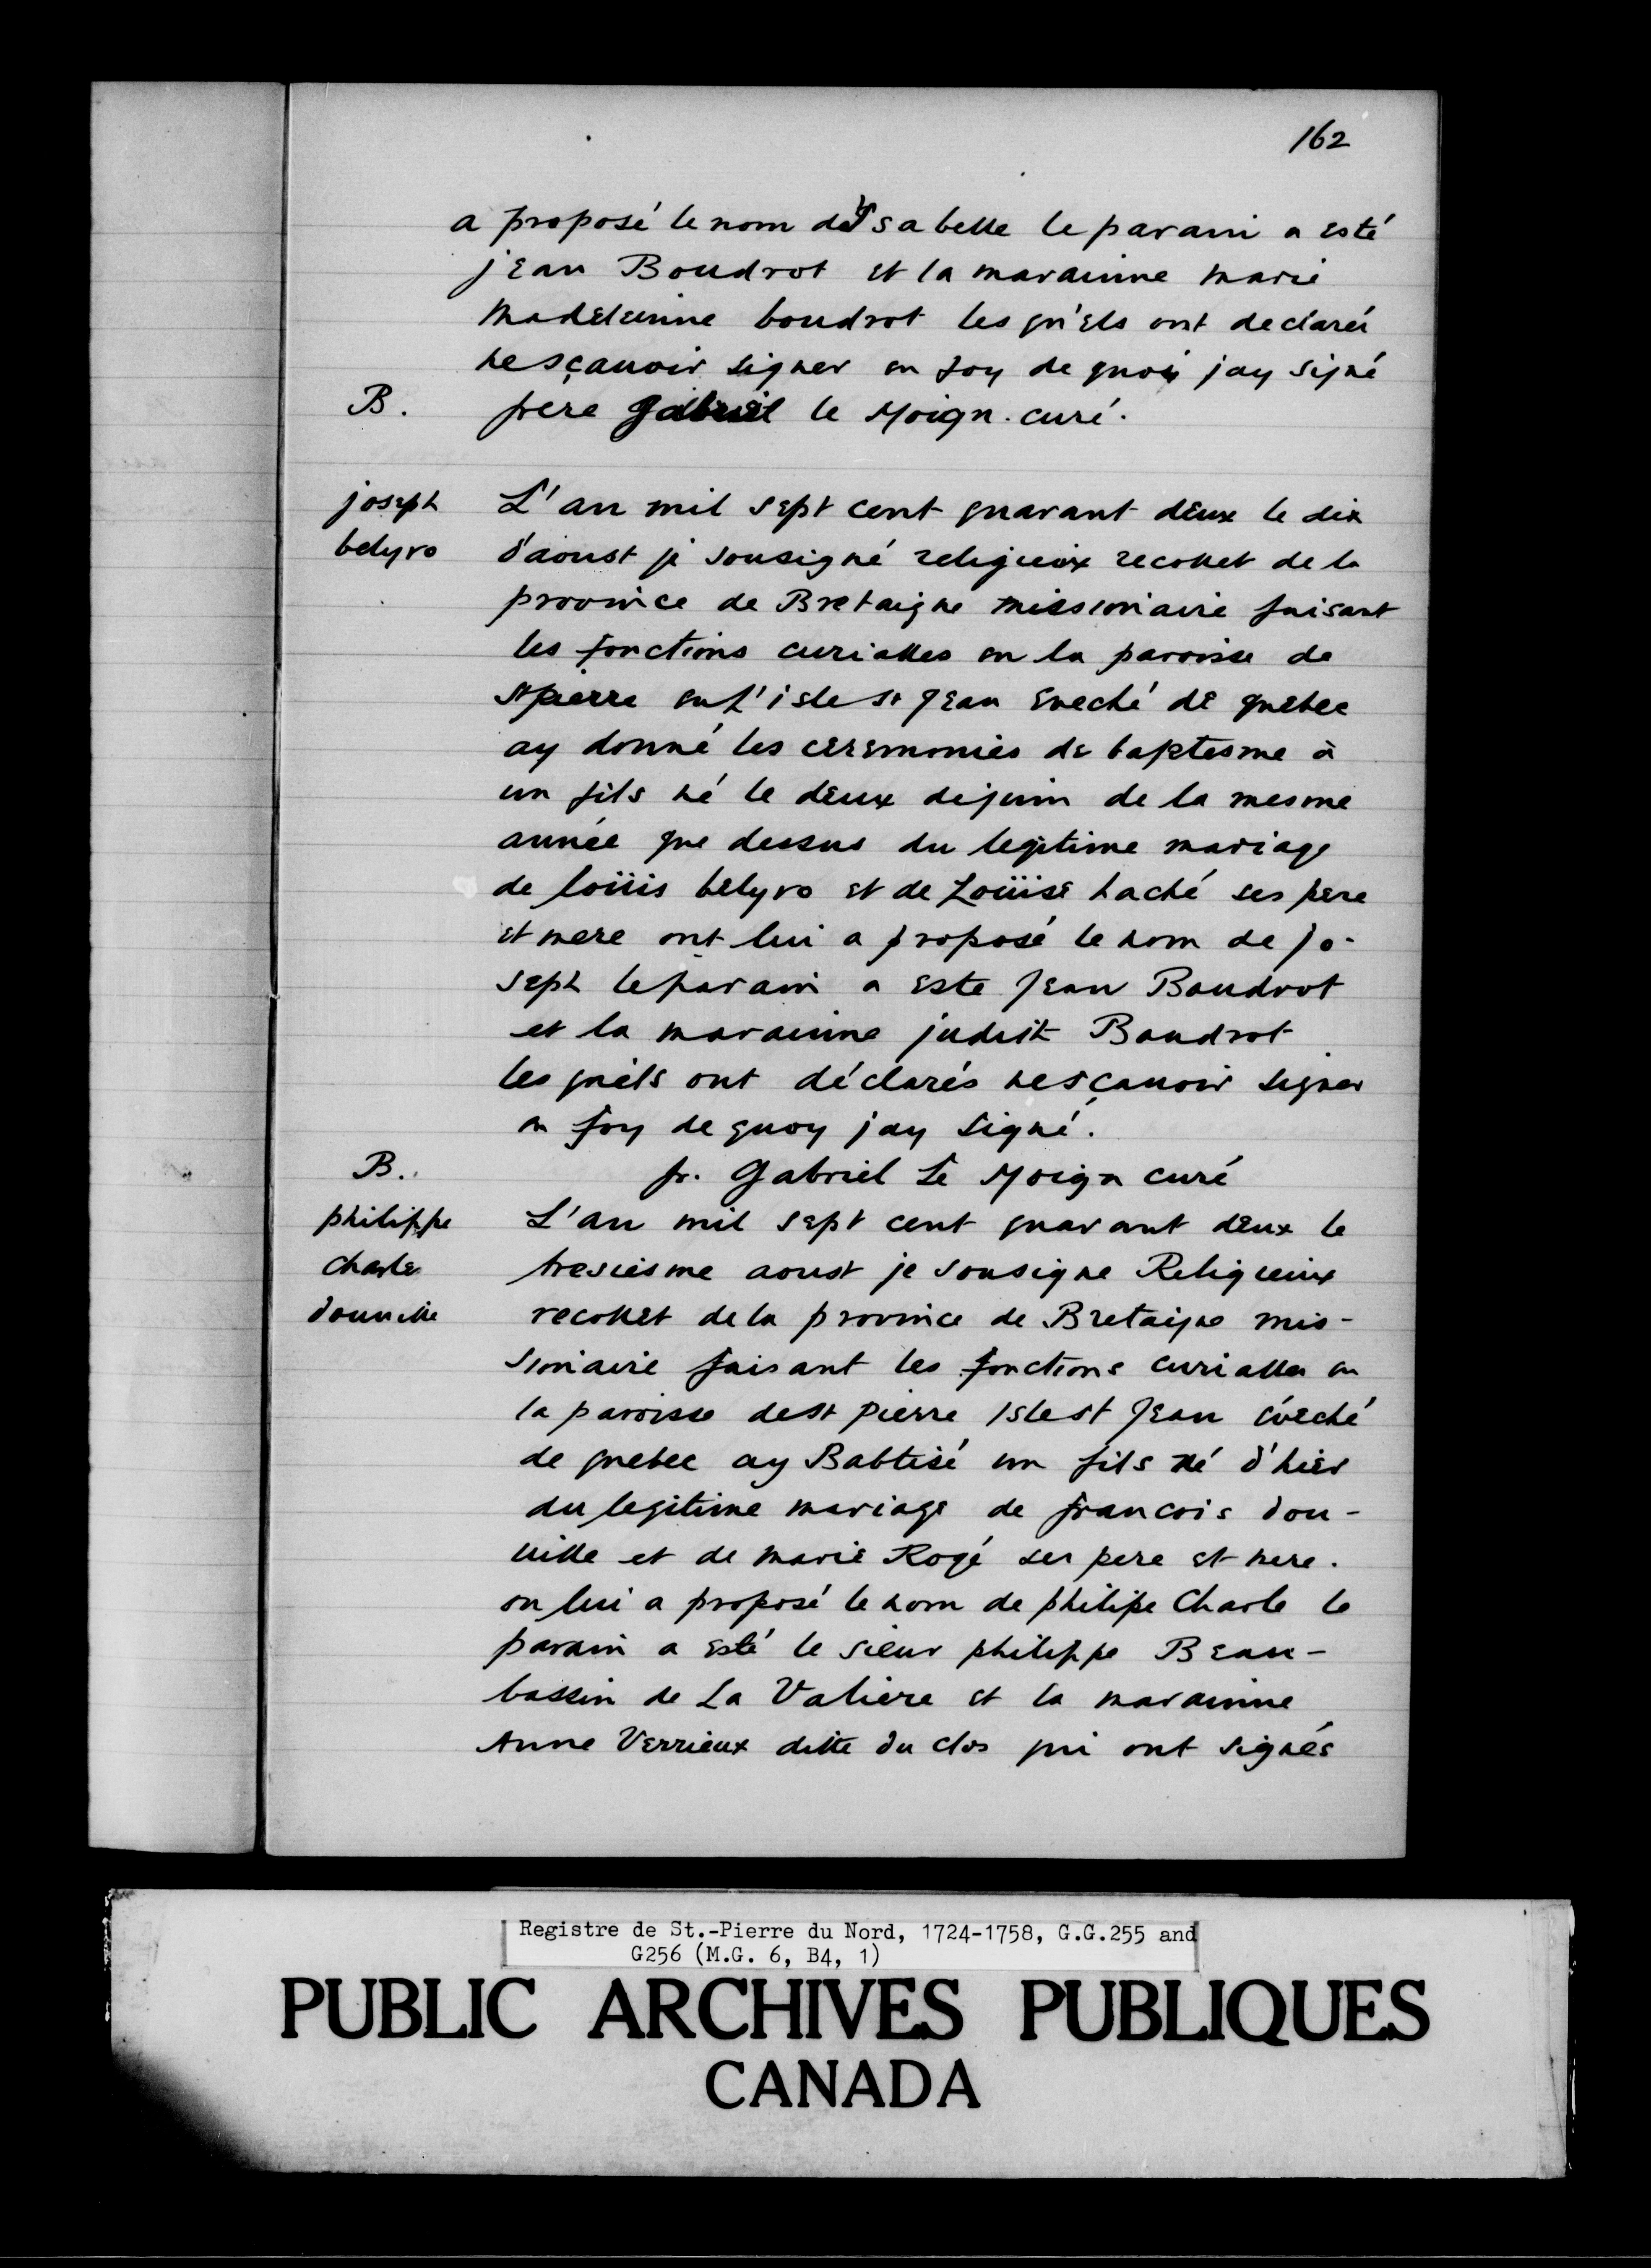 162
a proposé le nom deYsabelle le parain a esté
jean Boudrot et la marainne marie
Madeleinne boudrot les qu'els ont declarés
nesçauoir signer en foy de quoi jay signé
B.
frere Gabriel le Moign. curé.
joseph
belyro
L'an mil sept cent quarant deux le dix
d'aoust je sousigné religieux recollet de la
province de Bretaigne missionaire faisant
les fonctions curialles en la paroisse de
St pierre en L'isle St Jean eveché de quebec
ay donné les ceremonies de baptesme à
un fils né le deux dejuin de la mesme
année que dessus du legitime mariage
de loüis belyro et de Loüise haché ses pere
et mere ont lui a proposé le nom de jo-
seph leparain a este Jean Boudrot
et la marainne judith Boudrot
les quels ont déclarés nesçauoir signer
en foy de quoy jay signé.
fr. Gabriel Le Moign curé
B.
philippe
charle
douuille
L'an mil sept cent quarant deux le
tresiesme aoust je sousigne Religieux
recollet de la province de Bretaigne mis-
sionaire faisant les fonctions curialles en
la paroisse de St pierre isle St Jean évêché
de quebec ay Babtisé un fils né d'hier
du legitime mariage de francois dou-
uille et de marie Rogé ses pere et mere.
on lui a proposé le nom de philipe Charle le
parain a esté le sieur philippe Beau-
bassin de La Valiere et la marainne
Anne Verrieux ditte du clos qui ont signés
Registre de St.-Pierre du Nord, 1724-1758, G.G.255 and
G256 (M.G. 6, B4, 1)
PUBLIC ARCHIVES PUBLIQUES
CANADA